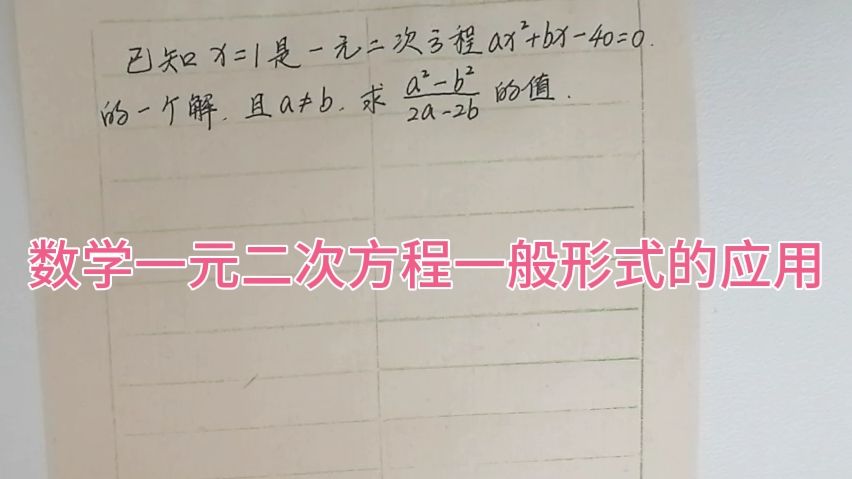 已知x=1是一元二次方程ax²+bx-40=0.
的一个解.且a≠b.求 (a²-b²)/(2a-2b) 的值.
数学一元二次方程一般形式的应用